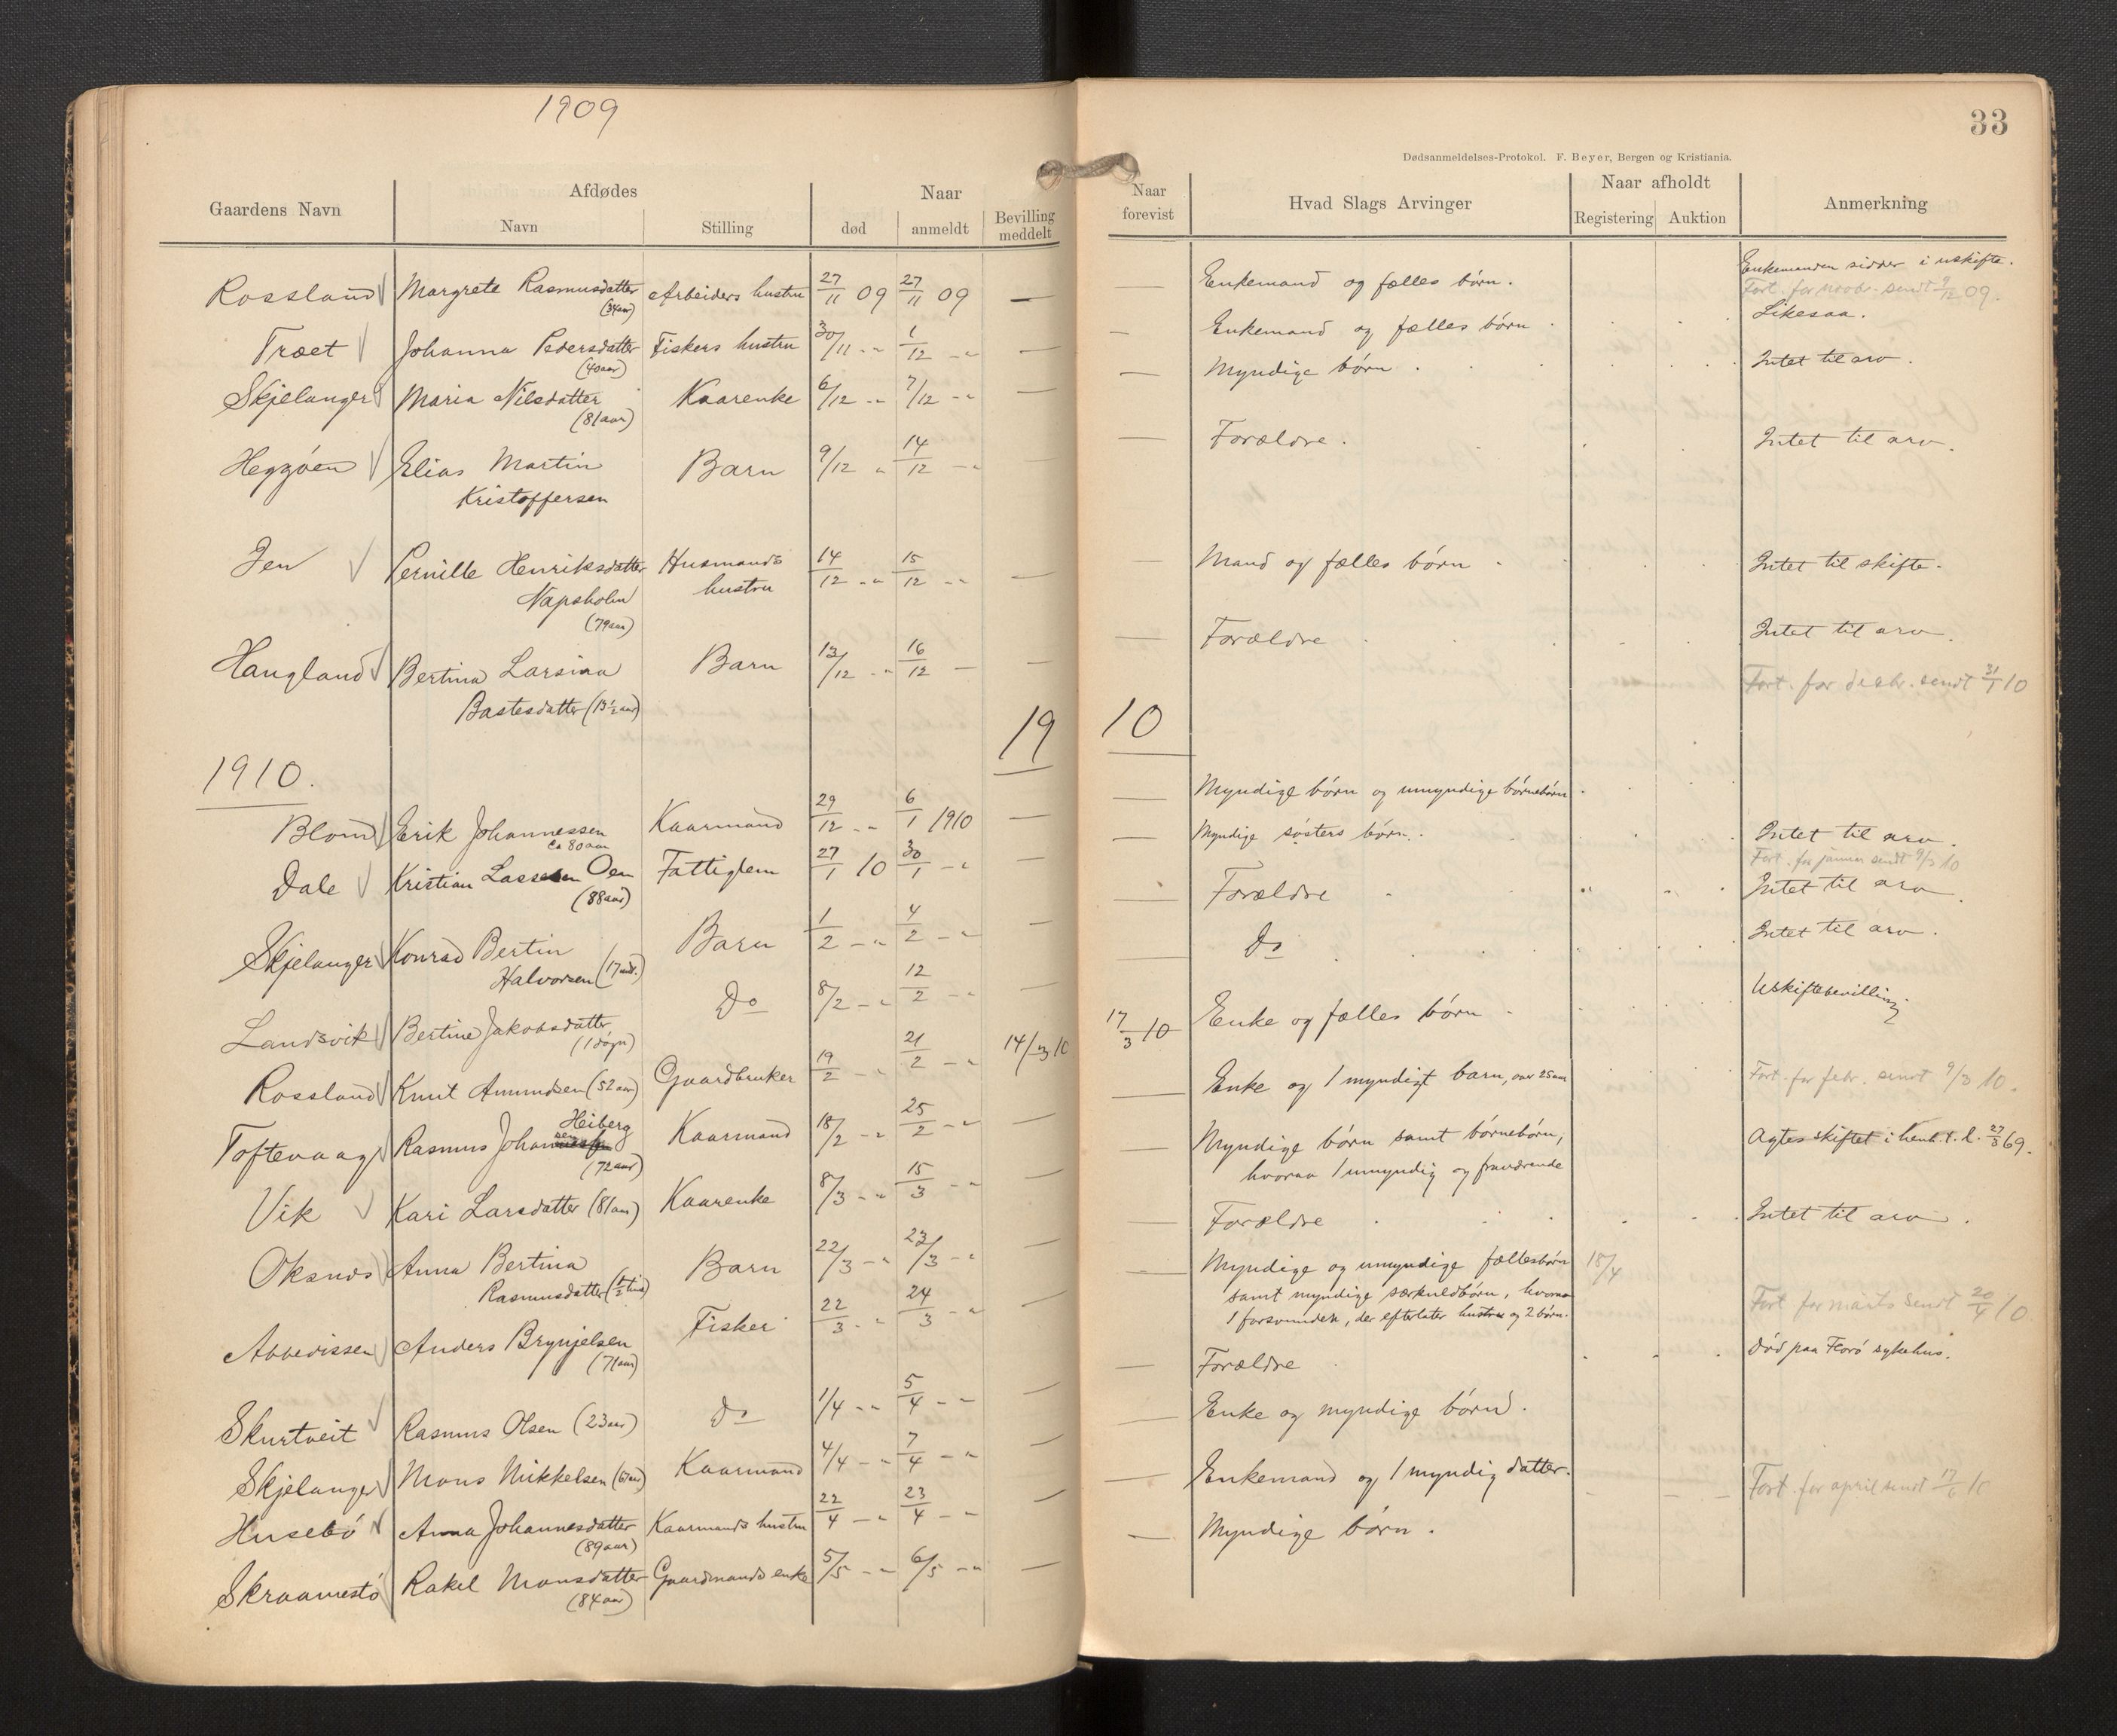 1909
33
Dødsanmeldelses-Protokol. F. Beyer, Bergen og Kristiania.
Gaardens Navn
Afdødes
Navn
Stilling
Naar
død
anmeldt
Bevilling meddelt
Naar forevist
Hvad Slags Arvinger
Naar afholdt
Registering
Auktion
Anmerkning
Rossland Margrete Rasmusdatter Arbeiders hustru 27/11 09 27/11 09 — — Enkemand og fælles børn. Enkemanden sidder i uskifte.
(34 aar) Fort. for novbr. sendt 9/12 09.
Træet Johanna Pedersdatter Fiskers hustru 30/11 -"- 1/12 -"- — — Enkemand og fælles børn. Likesaa.
(40 aar)
Skjelanger Maria Nilsdatter Kaarenke 6/12 -"- 7/12 -"- — — Myndige børn. Intet til arv.
(81 aar)
Heggøen Elias Martin Barn 9/12 " 14/12 -"- — — Forældre. Intet til arv.
Kristoffersen
Pernille Henriksdatter Husmands 14/12 -"- 15/12 -"- — — Mand og fælles børn. Intet til skifte.
Napsholm hustru
(79 aar)
Haugland Bertina Larsina Barn 13/12 -"- 16/12 — — — Forældre Intet til arv.
Bastesdatter (13 1/2 aar) Fort. for decbr. sendt 31/1 10
19 10
1910.
Blom Erik Johannessen Kaarmand 29/12 -"- 6/1 1910 — — Myndige børn og umyndige børnebørn
ca 80 aar
Dale Kristian Lassesen Oen Fattiglem 27/1 10 30/1 -"- — — Myndige søsters børn. Intet til arv.
(88 aar) Fort. for januar sendt 9/3 10
Skjelanger Konrad Bertin Barn 1/2 -"- 4/2 -"- — — Forældre Intet til arv.
Halvorsen (17 mdr.)
Landsvik Bertine Jakobsdatter Do 8/2 -"- 12/2 -"- — — Do Intet til arv.
(1 døgn)
Rossland Knut Amundsen (52 aar) Gaardbruker 19/2 -"- 21/2 -"- 14/3 10 17/3 10 Enke og fælles børn Uskiftebevilling
Toftevaag Rasmus Johannessen Heiberg Kaarmand 18/2 -"- 25/2 -"- — — Enke og 1 myndigt barn, over 25 aar Fort. for febr. sendt 9/3 10.
(72 aar)
Vik Kari Larsdatter (81 aar) Kaarenke 8/3 -"- 15/3 -"- — — Myndige børn samt børnebørn, Agtes skiftet i henh. t. l. 27/3 69.
hvoraf 1 umyndig og fraværende
Oksnes Anna Bertina Barn 22/3 -"- 23/3 -"- — — Forældre Intet til arv.
Rasmusdatter (1/2 time)
Abbedissen Anders Brynjelsen Fisker 22/3 -"- 24/3 -"- — — Myndige og umyndige fællesbørn 18/4
(71 aar) samt myndige særkuldbørn, hvoraf
1 forsvunden, der efterlater hustru og 2 børn. Fort for marts sendt 20/4 10
Skurtveit Rasmus Olsen (23 aar) Do 1/4 -"- 5/4 -"- — — Forældre Død paa Florø sykehus.
Skjelanger Mons Mikkelsen Kaarmand 4/4 -"- 7/4 -"- — — Enke og myndige børn.
Husebø Anna Johannesdatter Kaarmands hustru 22/4 -"- 23/4 -"- — — Enkemand og 1 myndig datter. Fort. for april sendt
(89 aar)
Skraamestø Rakel Monsdatter Gaardmands enke 5/5 -"- 6/5 -"- — — Myndige børn.
(84 aar)